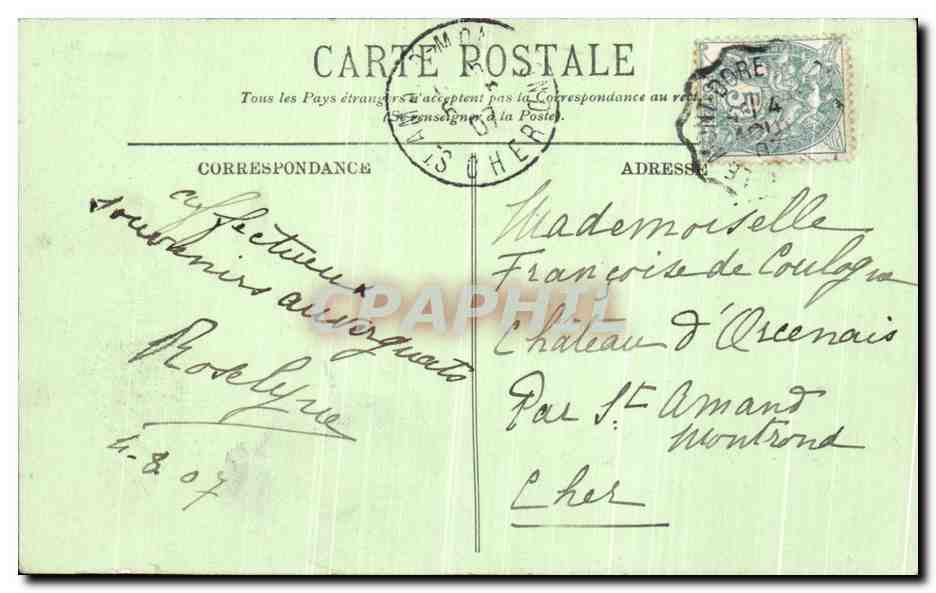 CARTE POSTALE
Tous les Pays étrangers n'acceptent pas la Correspondance au recto
(Se renseigner à la Poste).
CORRESPONDANCE
ADRESSE
affectueux
souvenirs auvergnats
Roselyne
4.8.07
Mademoiselle
Françoise de Coulogne
Château d'Orcenais
Par St Amand
Montrond
Cher
ST AMAND MO
CHER
DORE
4
AOUT
07
CPAPHIL